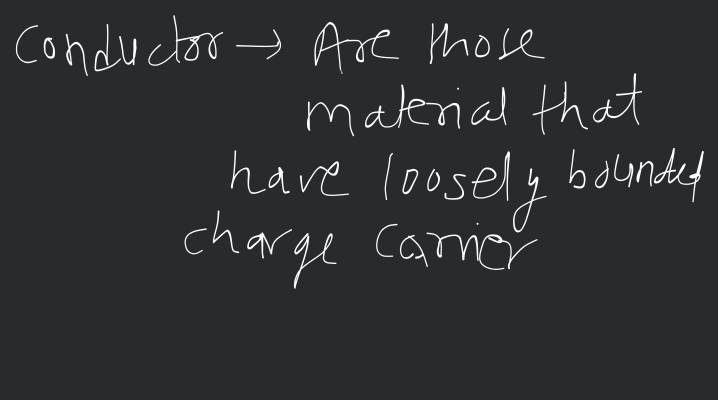 Conductor → Are those
material that
have loosely bounded
charge carrier